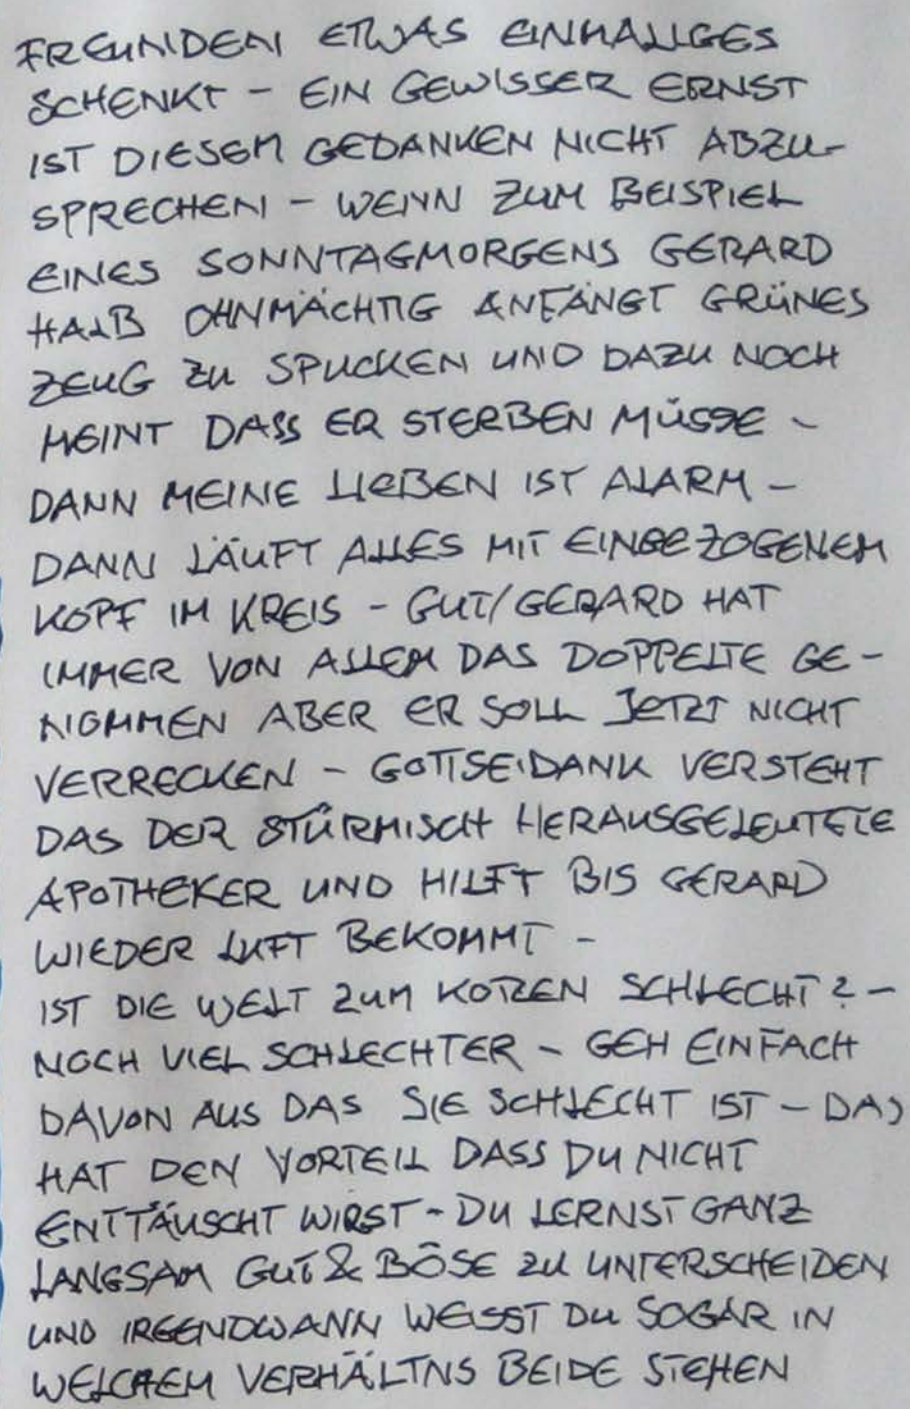 FREUNDEN ETWAS EINMALIGES
SCHENKT - EIN GEWISSER ERNST
IST DIESEM GEDANKEN NICHT ABZU-
SPRECHEN - WENN ZUM BEISPIEL
EINES SONNTAGMORGENS GERARD
HALB OHNMÄCHTIG ANFÄNGT GRÜNES
ZEUG ZU SPUCKEN UND DAZU NOCH
MEINT DASS ER STERBEN MÜSSE -
DANN MEINE LIEBEN IST ALARM -
DANN LÄUFT ALLES MIT EINBEZOGENEM
KOPF IM KREIS - GUT/GERARD HAT
IMMER VON ALLEM DAS DOPPELTE GE-
NOMMEN ABER ER SOLL JETZT NICHT
VERRECKEN - GOTTSEIDANK VERSTEHT
DAS DER STÜRMISCH HERAUSGELEUTETE
APOTHEKER UND HILFT BIS GERARD
WIEDER LUFT BEKOMMT -
IST DIE WELT ZUM KOTZEN SCHLECHT? -
NOCH VIEL SCHLECHTER - GEH EINFACH
DAVON AUS DAS SIE SCHLECHT IST - DAS
HAT DEN VORTEIL DASS DU NICHT
ENTTÄUSCHT WIRST - DU LERNST GANZ
LANGSAM GUT & BÖSE ZU UNTERSCHEIDEN
UND IRGENDWANN WEISST DU SOGAR IN
WELCHEM VERHÄLTNS BEIDE STEHEN